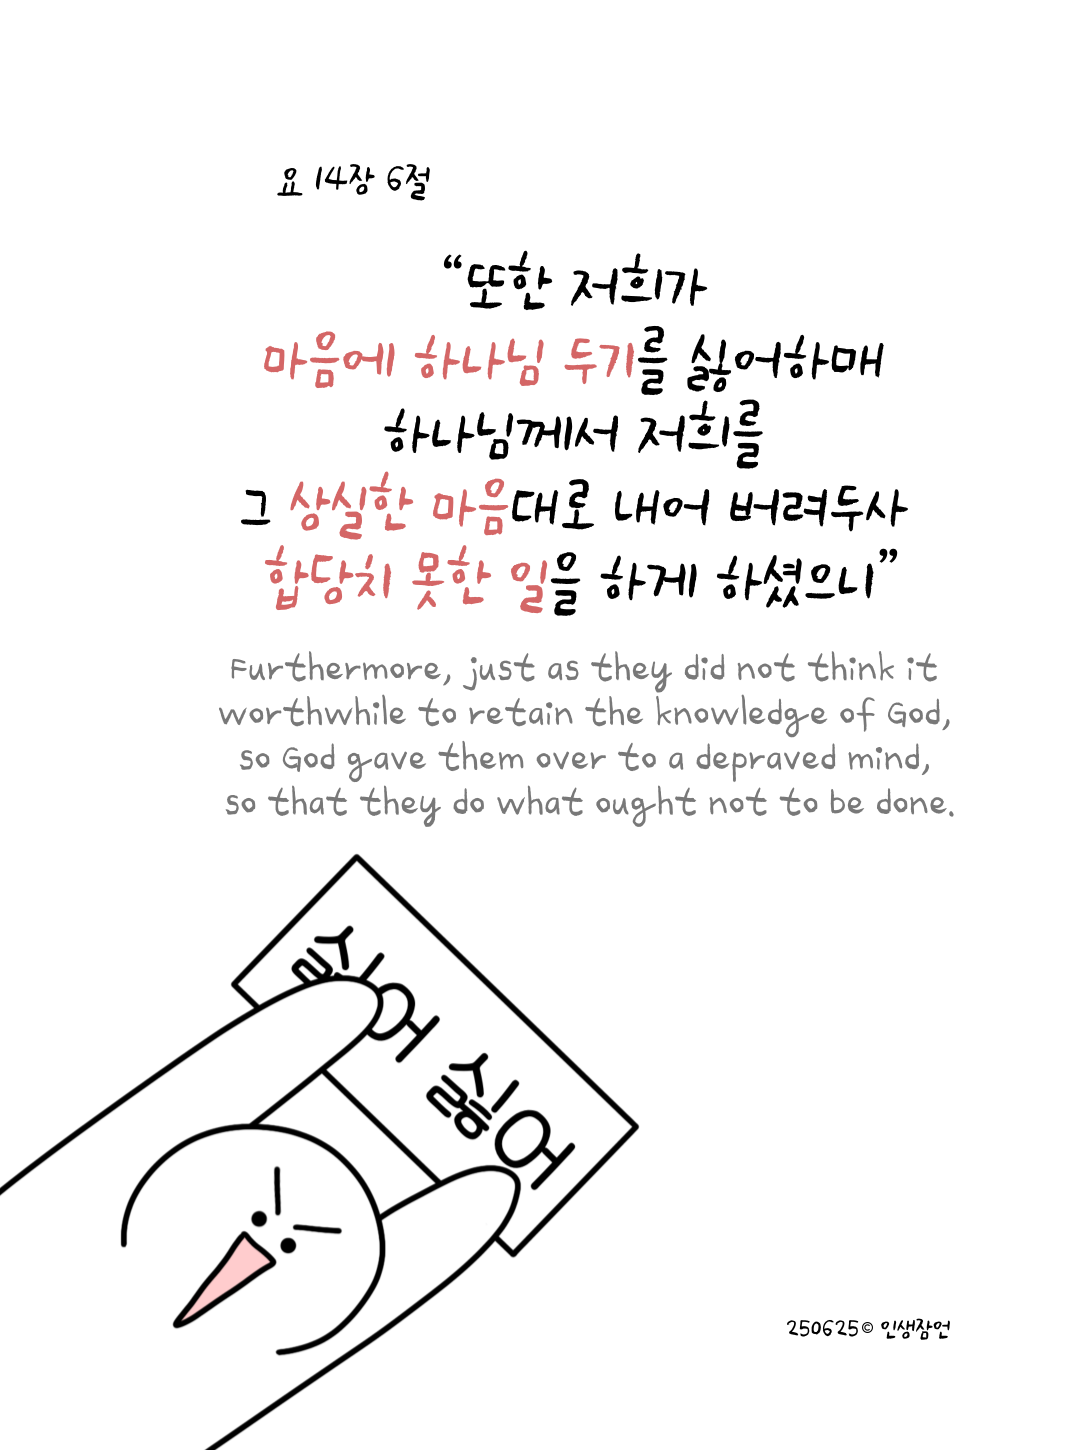 요 14장 6절
“또한 저희가
마음에 하나님 두기를 싫어하매
하나님께서 저희를
그 상실한 마음대로 내어 버려두사
합당치 못한 일을 하게 하셨으니”
Furthermore, just as they did not think it
worthwhile to retain the knowledge of God,
so God gave them over to a depraved mind,
so that they do what ought not to be done.
싫어 싫어
250625© 인생잠언